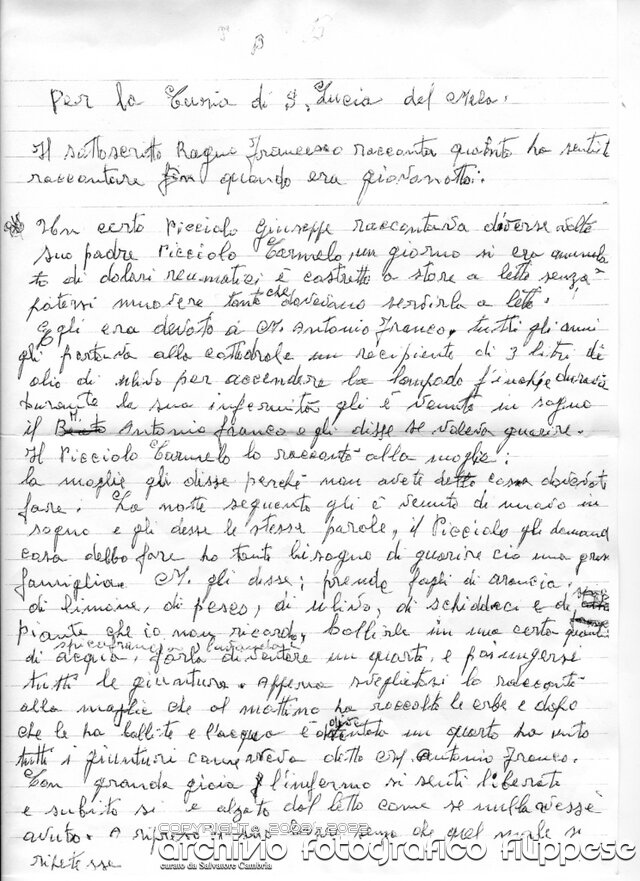 Per la Curia di S. Lucia del Mela.
Il sottoscritto Ragno Francesco racconta quanto ha sentito
raccontare quando era giovanotto:
Un certo Picciolo Giuseppe raccontava diverse volte
suo padre Picciolo Carmelo, un giorno si era
to di dolori reumatici è costretto a stare a letto senza
potersi muovere tanto che dovevano servirlo a letto.
Egli era devoto a M. Antonio Franco, tutti gli anni
gli portava alla cattedrale un recipiente di 3 litri di
olio di ulivo per accendere la lampada finché durava
durante la sua infermità gli è venuto in sogno
il M. Antonio Franco e gli disse se voleva guarire.
Il Picciolo Carmelo lo raccontò alla moglie:
la moglie gli disse perché non avete detto cosa dovevat
fare. La notte seguente gli è venuto di nuovo in
sogno e gli desse le stesse parole, il Picciolo gli domand
cosa debbo fare ho tanto bisogno di guarire ciò una gros
famiglia. M. gli disse; prende fogli di arancia,
di limone, di pesco, di ulivo, di schiddaci e di
piante che io non ricordo, bollirle in una certa quanti
di acqua, farla diventare un quarto, e poi ungersi
tutti le giunture. Appena svegliatosi lo raccontò
alla moglie che al mattino ha raccolto le erbe e dopo
che le ha bollite e l'acqua è diventata un quarto ha unto
tutti i giunturi come aveva detto M. Antonio Franco.
Con granda gioia l'infermo si sentì liberato
e subito si è alzato dal letto come se nulla avesse
avuto. A riposo che quel male si
ripetesse
COPYRIGHT 2009 - 2022
archivio fotografico filippese
curato da Salvatore Cambria